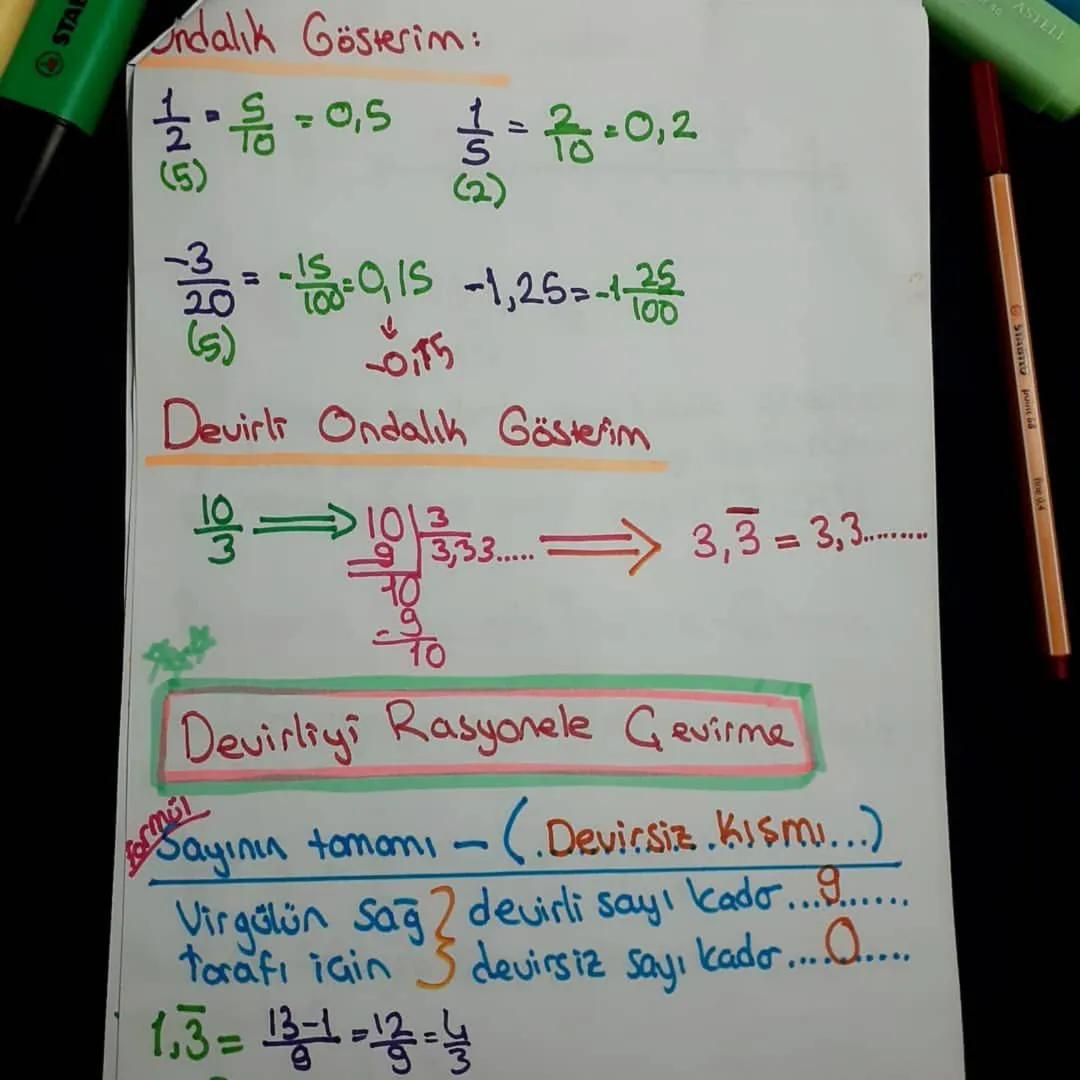 Ondalık Gösterim:
1/2 = 5/10 = 0,5   1/5 = 2/10 = 0,2
(5)   (2)
-3/20 = -15/100 = 0,15   -1,25 = -1 25/100
(5)   ↓
-0,15
Devirli Ondalık Gösterim
10/3 ⟹ 10 | 3   ⟹ 3,3̅ = 3,3........
- 9   3,33.....
10
- 9
10
Devirliyi Rasyonele Çevirme
formül
Sayının tamamı - (.Devirsiz.Kısmı...)
Virgülün sağ } devirli sayı kadar...9......
tarafı için } devirsiz sayı kadar....0.....
1,3̅ = 13-1/9 = 12/9 = 4/3
STABILO point 88 fine 0,4